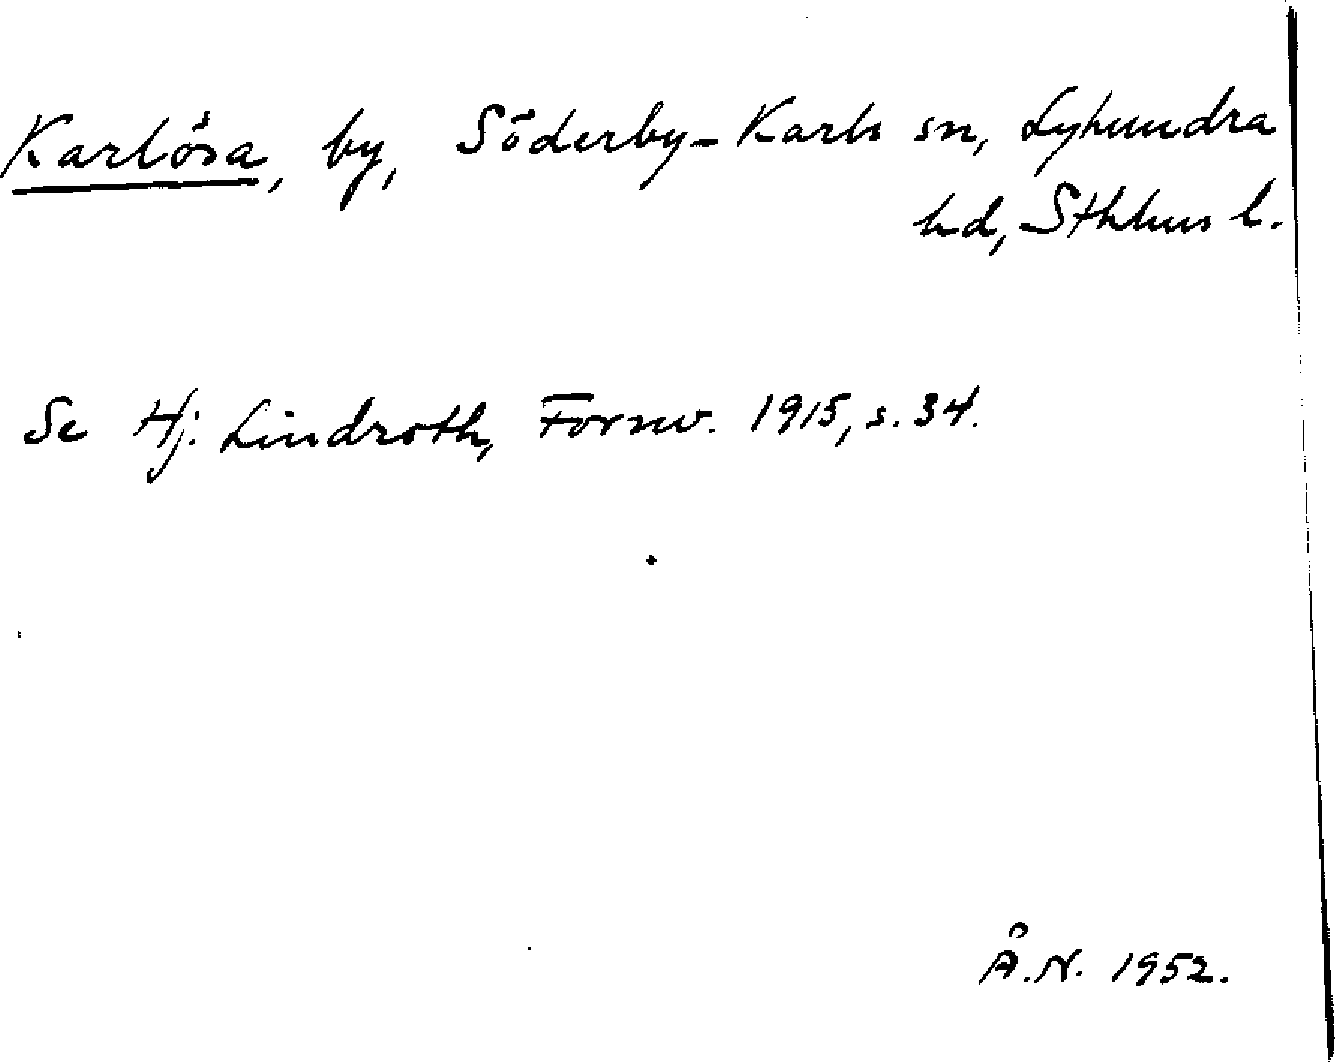 Karlösa, by, Söderby-Karls sn, Lyhundra
hd, Sthlms l.
Se Hj. Lindroth, Fornv. 1915, s. 34.
Å.N. 1952.